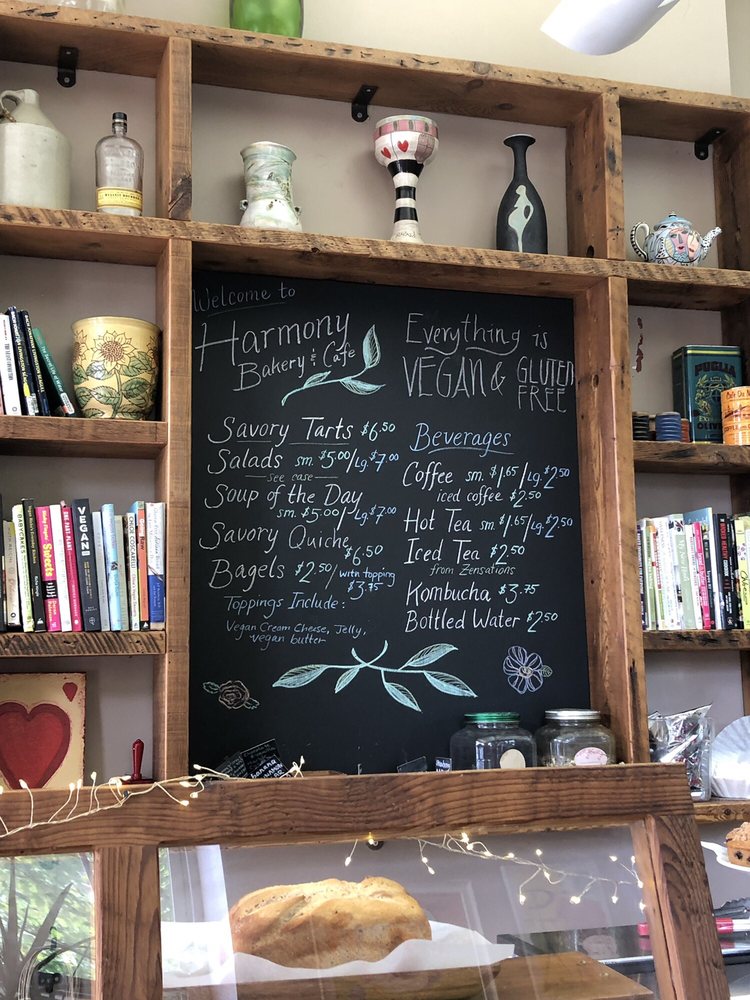 Welcome to
Harmony
Bakery & Cafe
Everything is
VEGAN & GLUTEN
FREE
Savory Tarts $6.50
Salads sm. $5.00/Lg. $7.00
see case
Soup of the Day
sm. $5.00/Lg. $7.00
Savory Quiche
$6.50
Bagels $2.50/with topping
$3.75
Toppings Include:
Vegan Cream Cheese, Jelly,
vegan butter
Beverages
Coffee sm. $1.65/Lg. $2.50
iced coffee $2.50
Hot Tea sm. $1.65/Lg. $2.50
Iced Tea $2.50
from Zensations
Kombucha $3.75
Bottled Water $2.50
PUGLIA
BABYCAKES
Sweets
EAT PARTY
VEGAN